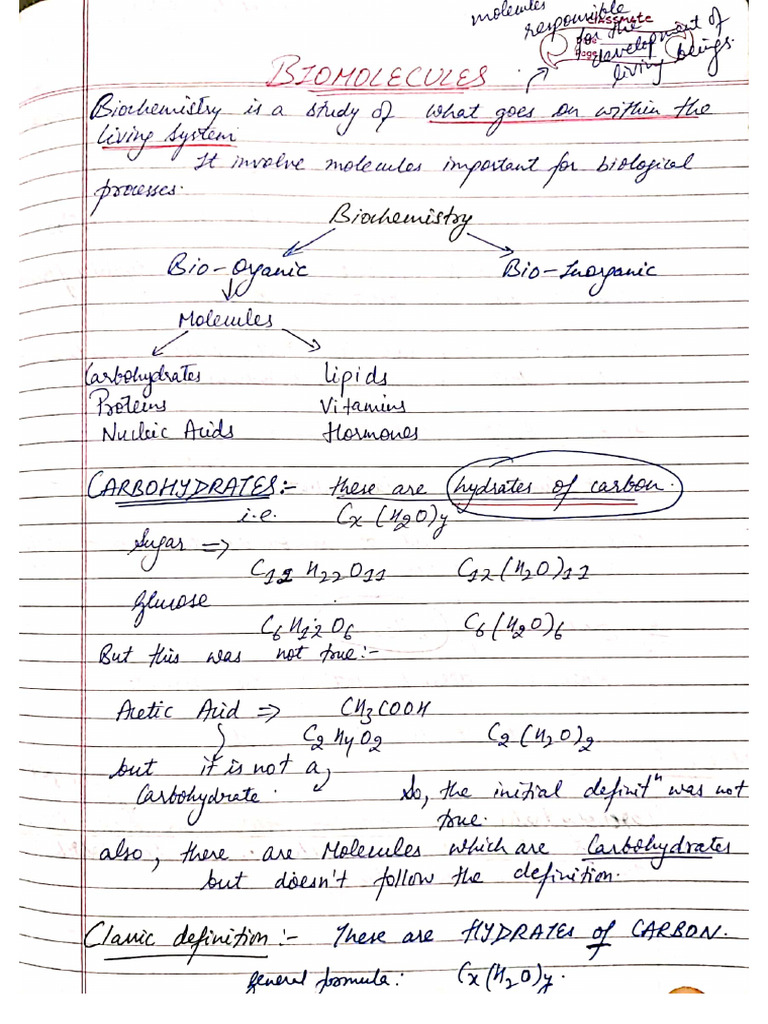 molecules
responsible
for the
development of
living beings.
classmate
BIOMOLECULES
Biochemistry is a study of what goes on within the
living system
It involve molecules important for biological
processes.
Biochemistry
Bio-Organic Bio-Inorganic
Molecules
Carbohydrates Lipids
Proteins Vitamins
Nucleic Acids Hormones
CARBOHYDRATES:- these are hydrates of carbon.
i.e. Cx(H2O)y
Sugar ⇒
C12H22O11 C12(H2O)11
Glucose
C6H12O6 C6(H2O)6
But this was not true:-
Acetic Acid ⇒ CH3COOH
C2H4O2 C2(H2O)2
but it is not a
Carbohydrate. So, the initial definitⁿ was not
true.
also, there are Molecules which are Carbohydrates
but doesn't follow the definition.
Classic definition:- These are HYDRATES of CARBON.
general formula: Cx(H2O)y.